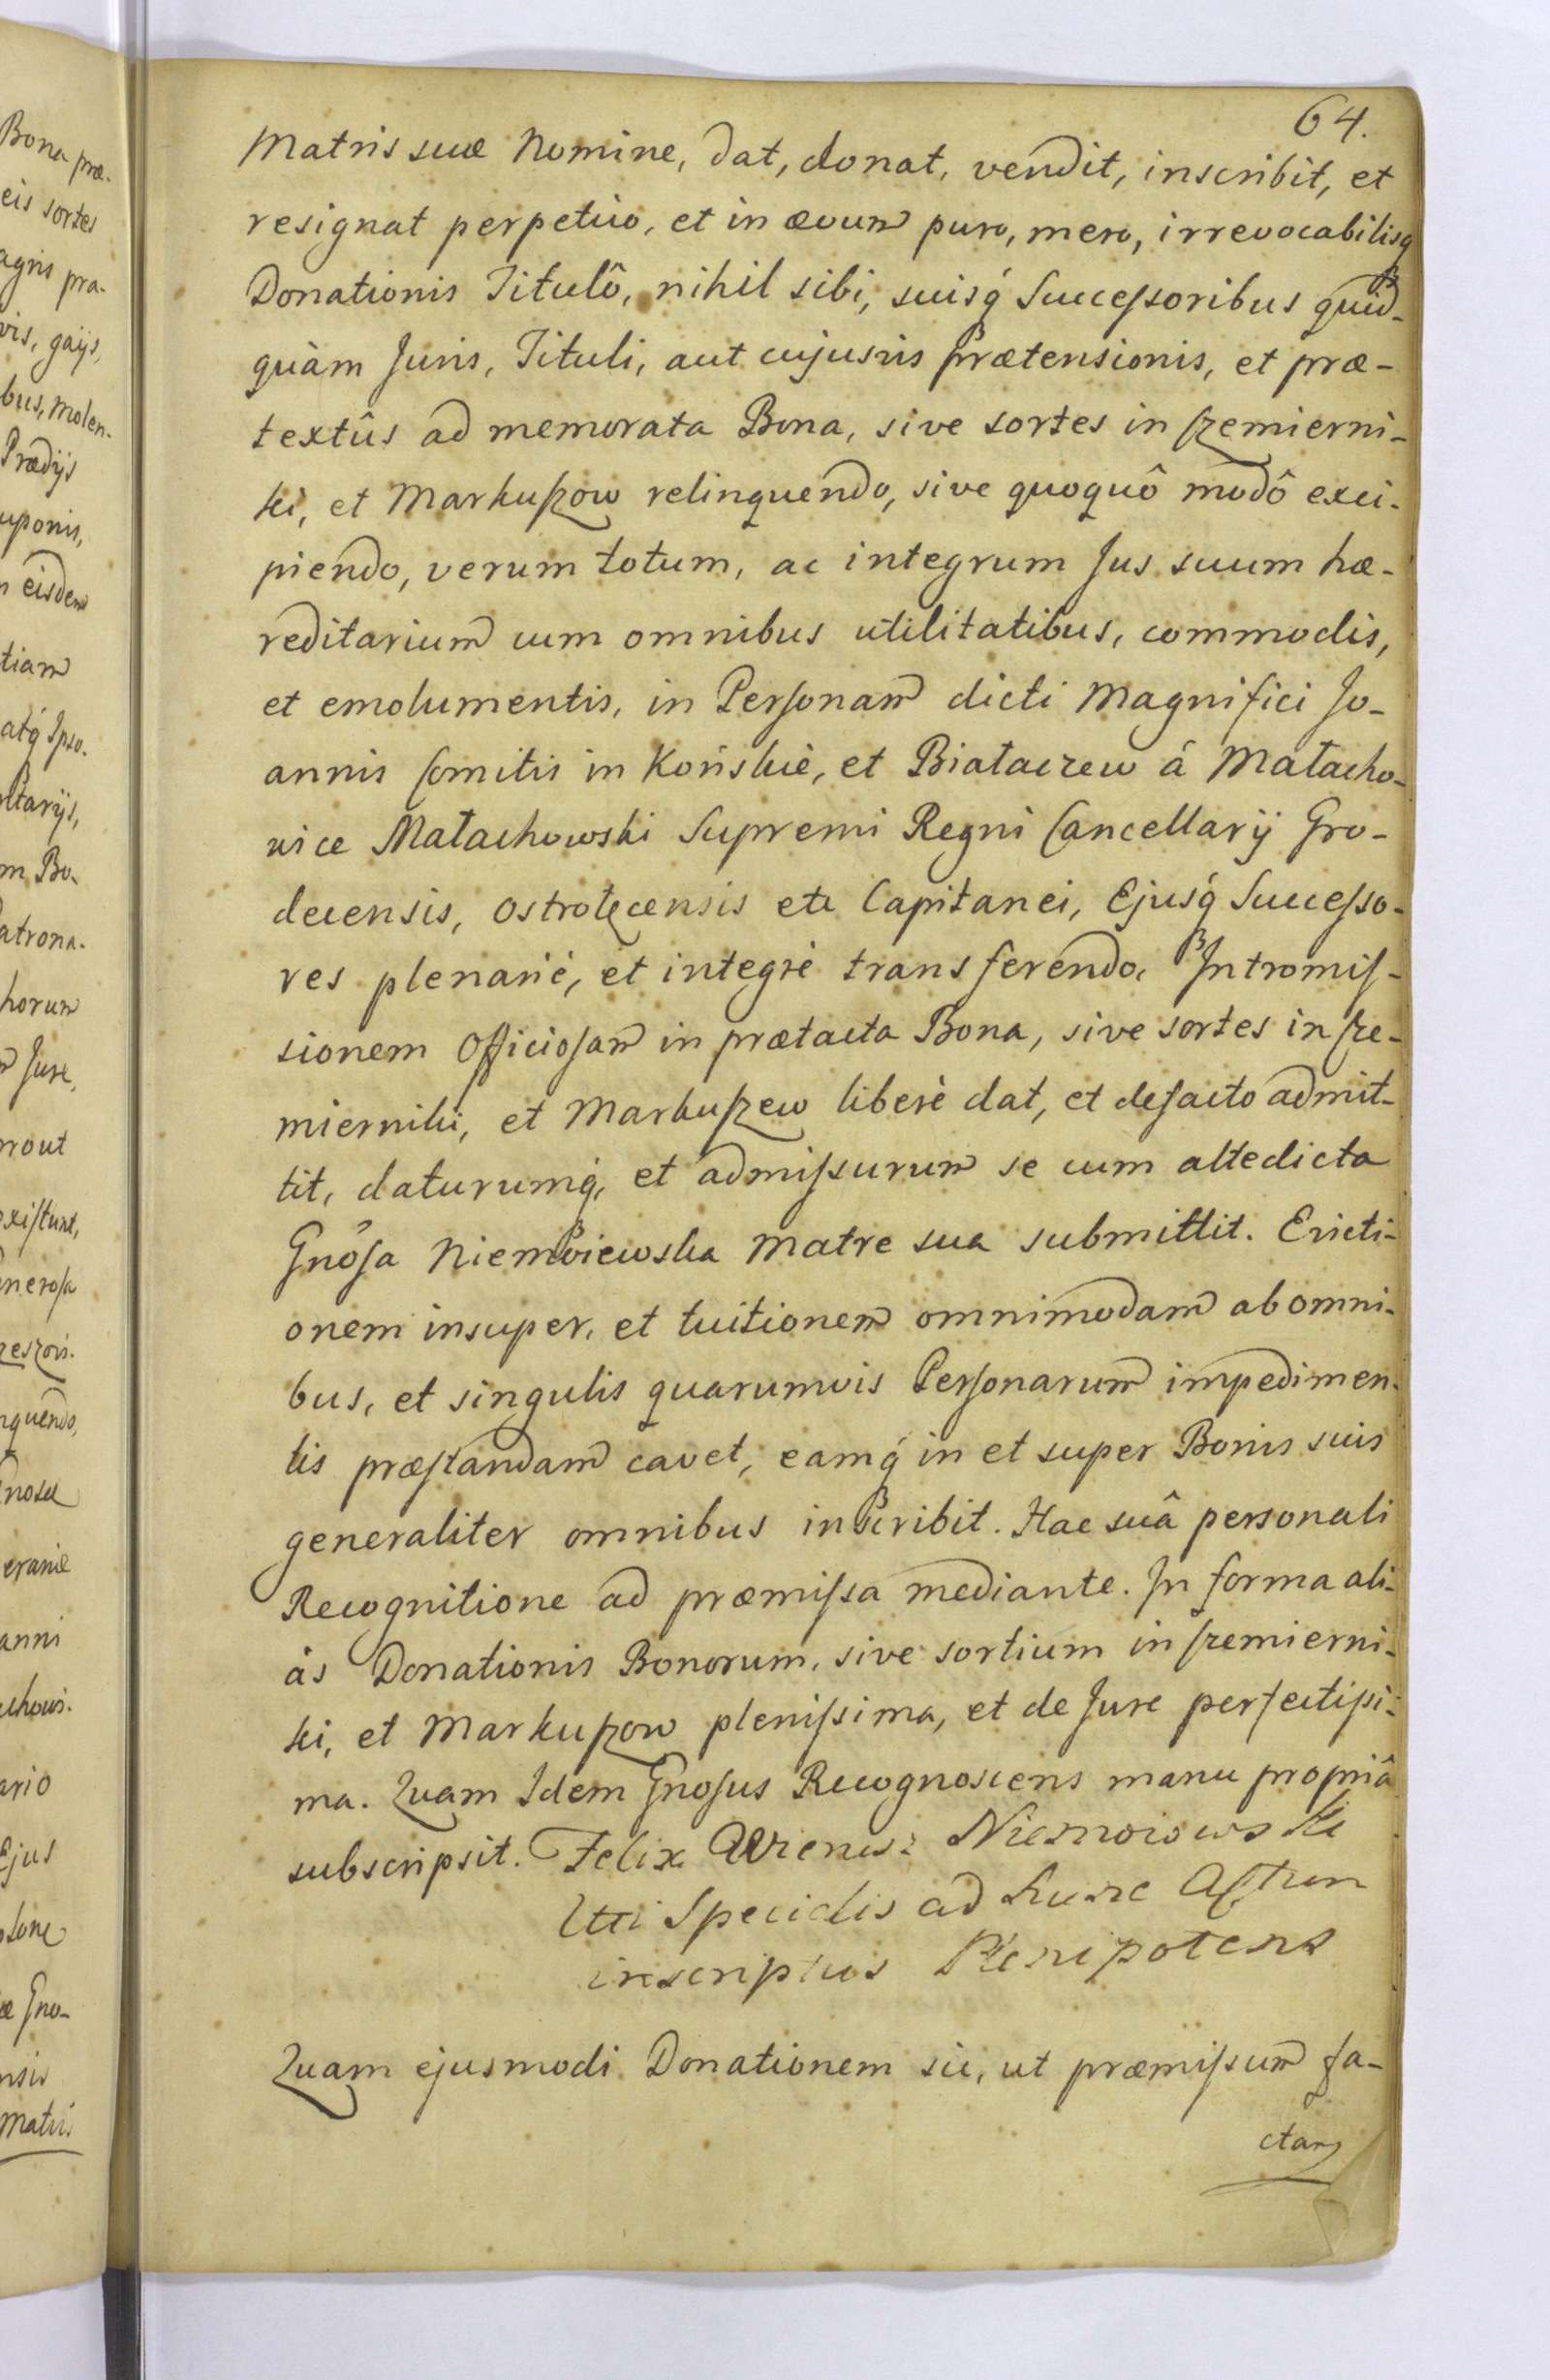 64.
Matris suæ Nomine, dat, donat, vendit, inscribit, et
resignat perpetuo, et in ævum puro, mero, irrevocabilisq́
Donationis Titulô, nihil sibi, suisq́ Successoribus quid-
quàm Juris, Tituli, aut cujusvis prætensionis, et præ-
textûs ad memorata Bona, sive sortes in Szemierni-
ki, et Markuszow relinquendo, sive quoquô modô exci-
piendo, verum totum, ac integrum Jus suum hæ-
reditarium cum omnibus utilitatibus, commodis,
et emolumentis, in Personam dicti Magnifici Jo-
annis Comitis in Końskie, et Białaczew á Małacho-
wice Małachowski Supremi Regni Cancellarij Gro-
decensis, Ostrołęcensis etc Capitanei, Ejusq́ Successo-
res plenariè, et integrè transferendo, Intromis-
sionem Officiosam in prætacta Bona, sive sortes in Sze-
mierniki, et Markuszew liberè dat, et defacto admit-
tit, daturumq́, et admissurum se cum altedicta
Gnosa Niemoiewska Matre sua submittit. Evicti-
onem insuper, et tuitionem omnimodam ab omni-
bus, et singulis quarumvis Personarum impedimen-
tis præstandam cavet, eamq́ in et super Bonis suis
generaliter omnibus inscribit. Hac suâ personali
Recognitione ad præmissa mediante. In forma ali-
às Donationis Bonorum, sive sortium in Szemierni-
ki, et Markuszow plenissima, et de Jure perfectissi-
ma. Quam Idem Gnosus Recognoscens manu propriâ
subscripsit. Felix Niemoiowski
Uti Specialis ad hunc Actum
inscriptus Plenipotens
Quam ejusmodi Donationem sic, ut præmissum fa-
ctam
Bona præ-
eis sortes
agris pra-
vis, gaijs,
bus, molen-
Prædijs
uponis,
eisdem
tiam
atq́ Ipso-
ltarijs,
m Bo-
atrona-
horum
Jure,
rout
xistunt,
nerosa
nquendo,
nosæ
anni
chows-
ario
Ejus
æ Gno-
nsis
Matris